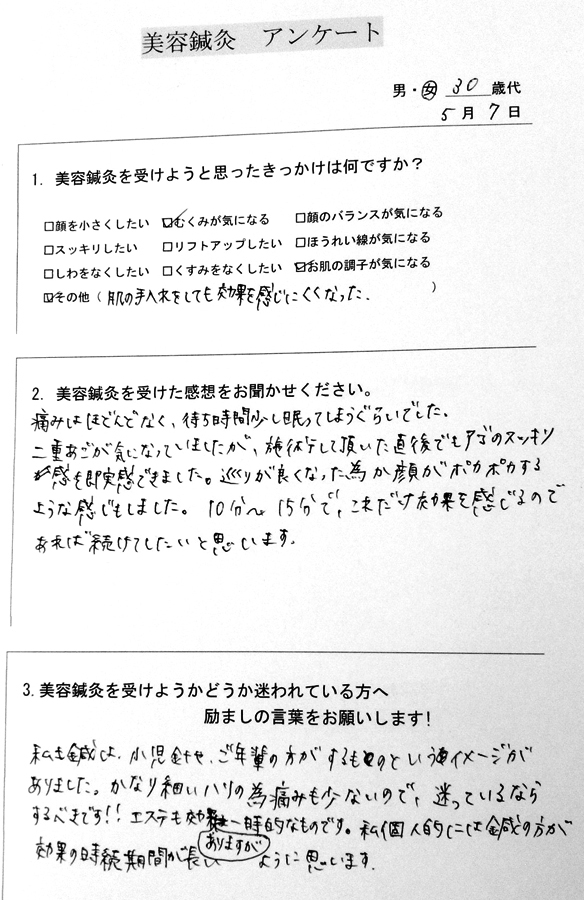 美容鍼灸　アンケート
男・女 30 歳代
5 月 7 日
1. 美容鍼灸を受けようと思ったきっかけは何ですか？
□顔を小さくしたい ☑むくみが気になる □顔のバランスが気になる
□スッキリしたい □リフトアップしたい □ほうれい線が気になる
□しわをなくしたい □くすみをなくしたい ☑お肌の調子が気になる
☑その他（ 肌の手入れをしても効果を感じにくくなった. ）
2. 美容鍼灸を受けた感想をお聞かせください。
痛みはほどんどなく、待ち時間少し眠ってしまうぐらいでした。
二重あごが気になっていましたが、施術して頂いた直後でもアゴのスッキリ
感を即実感できました。巡りが良くなった為か顔がポカポカする
ような感じもしました。 10分〜 15分で、これだけ効果を感じるので
あれば続けてしたいと思います.
3. 美容鍼灸を受けようかどうか迷われている方へ
励ましの言葉をお願いします！
私も鍼は、小児針や、ご年輩の方がするものというイメージが
ありました。かなり細いハリの為痛みも少ないので、迷っているなら
するべきです!! エステも効果は一時的なものです。私個人的には鍼の方が
ありますが
効果の時続期間が長い ように思います.